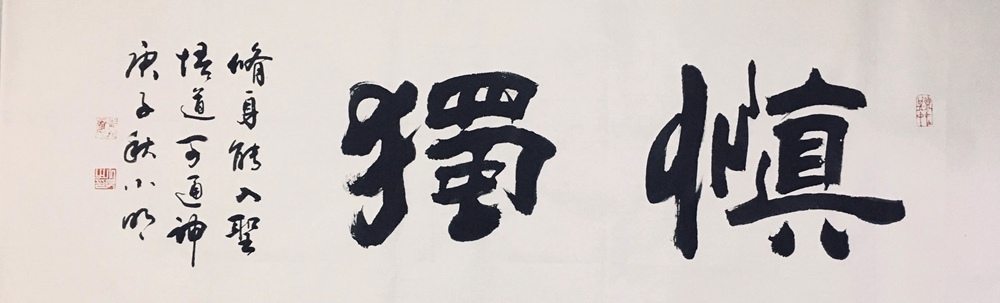 慎獨
脩身能入聖
悟道可通神
庚子秋小明